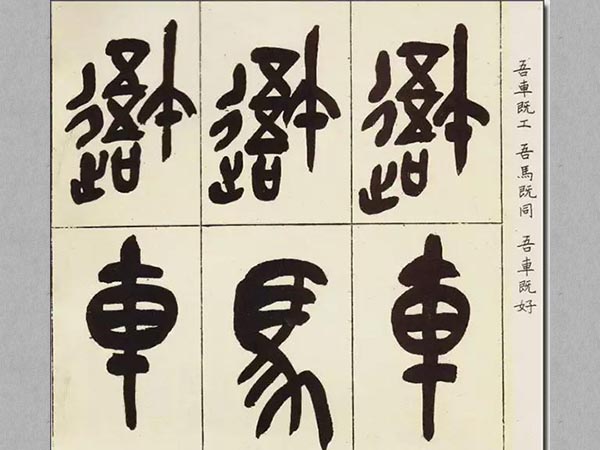 吾車既工 吾馬既同 吾車既好
吾車
吾馬
吾車